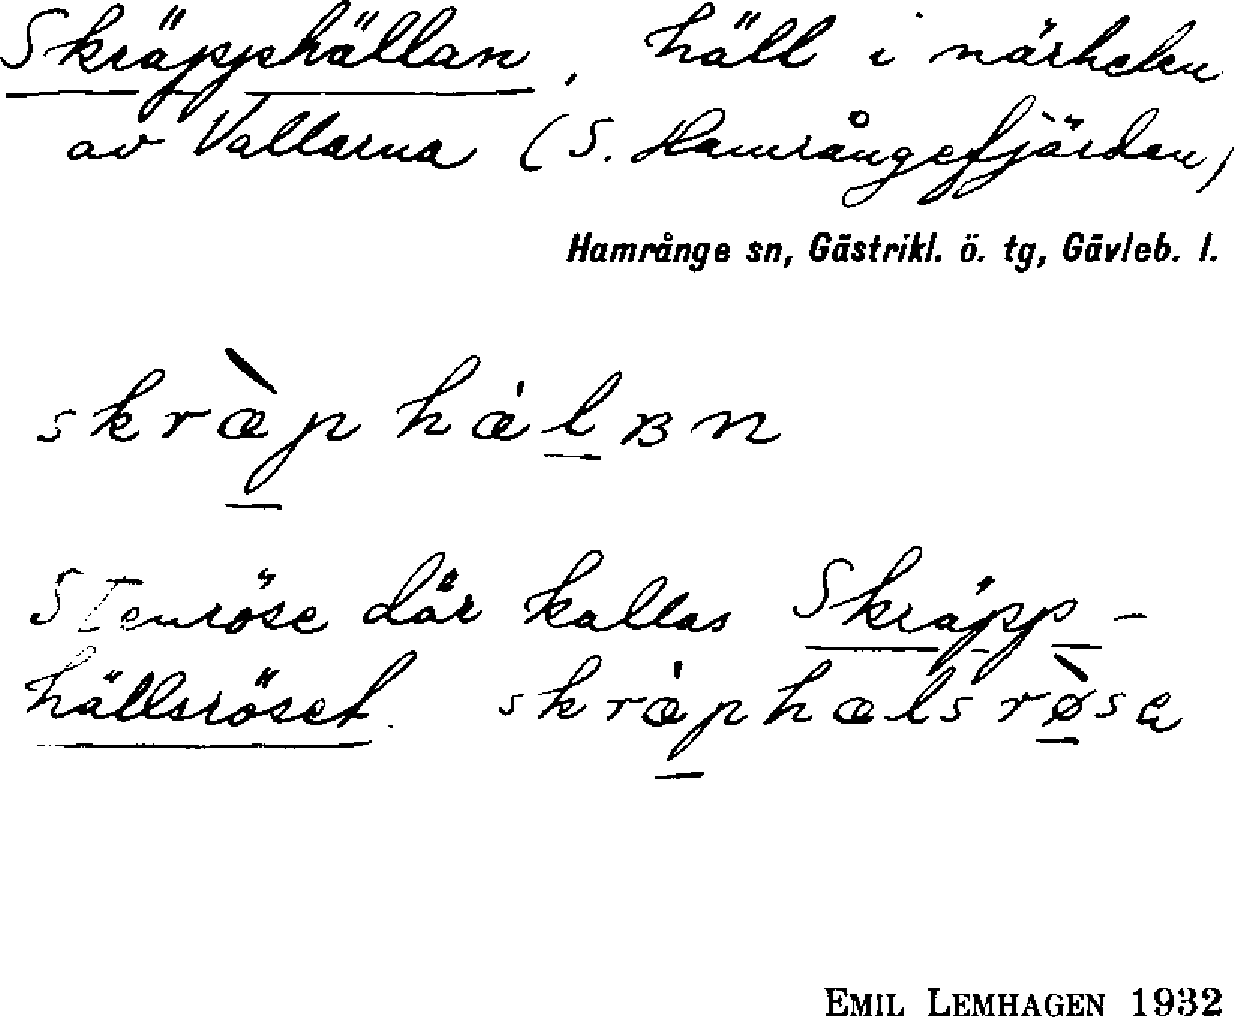 Skräpphällan, häll i närheten
av Vallarna (S. Hamrångefjärden)
Hamrånge sn, Gästrikl. ö. tg, Gävleb. l.
skræ̀p hǽlʙn
Stenröse där kallas Skräpp-
hällsröset. skrǽphælsrø̀sə
EMIL LEMHAGEN 1932